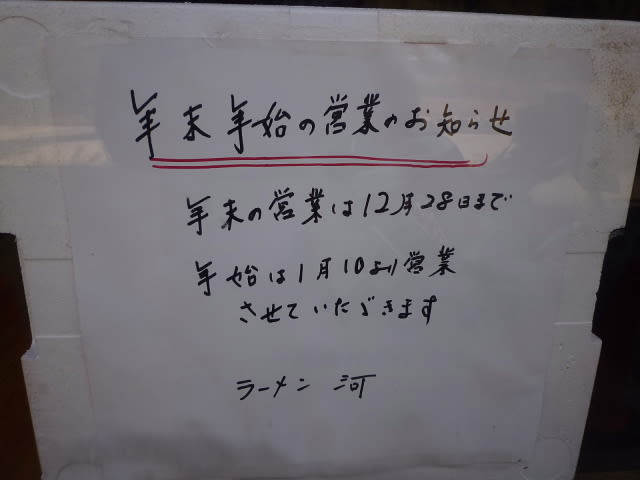 年末年始の営業のお知らせ
年末の営業は12月28日まで
年始は1月10より営業
させていただきます
ラーメン 河